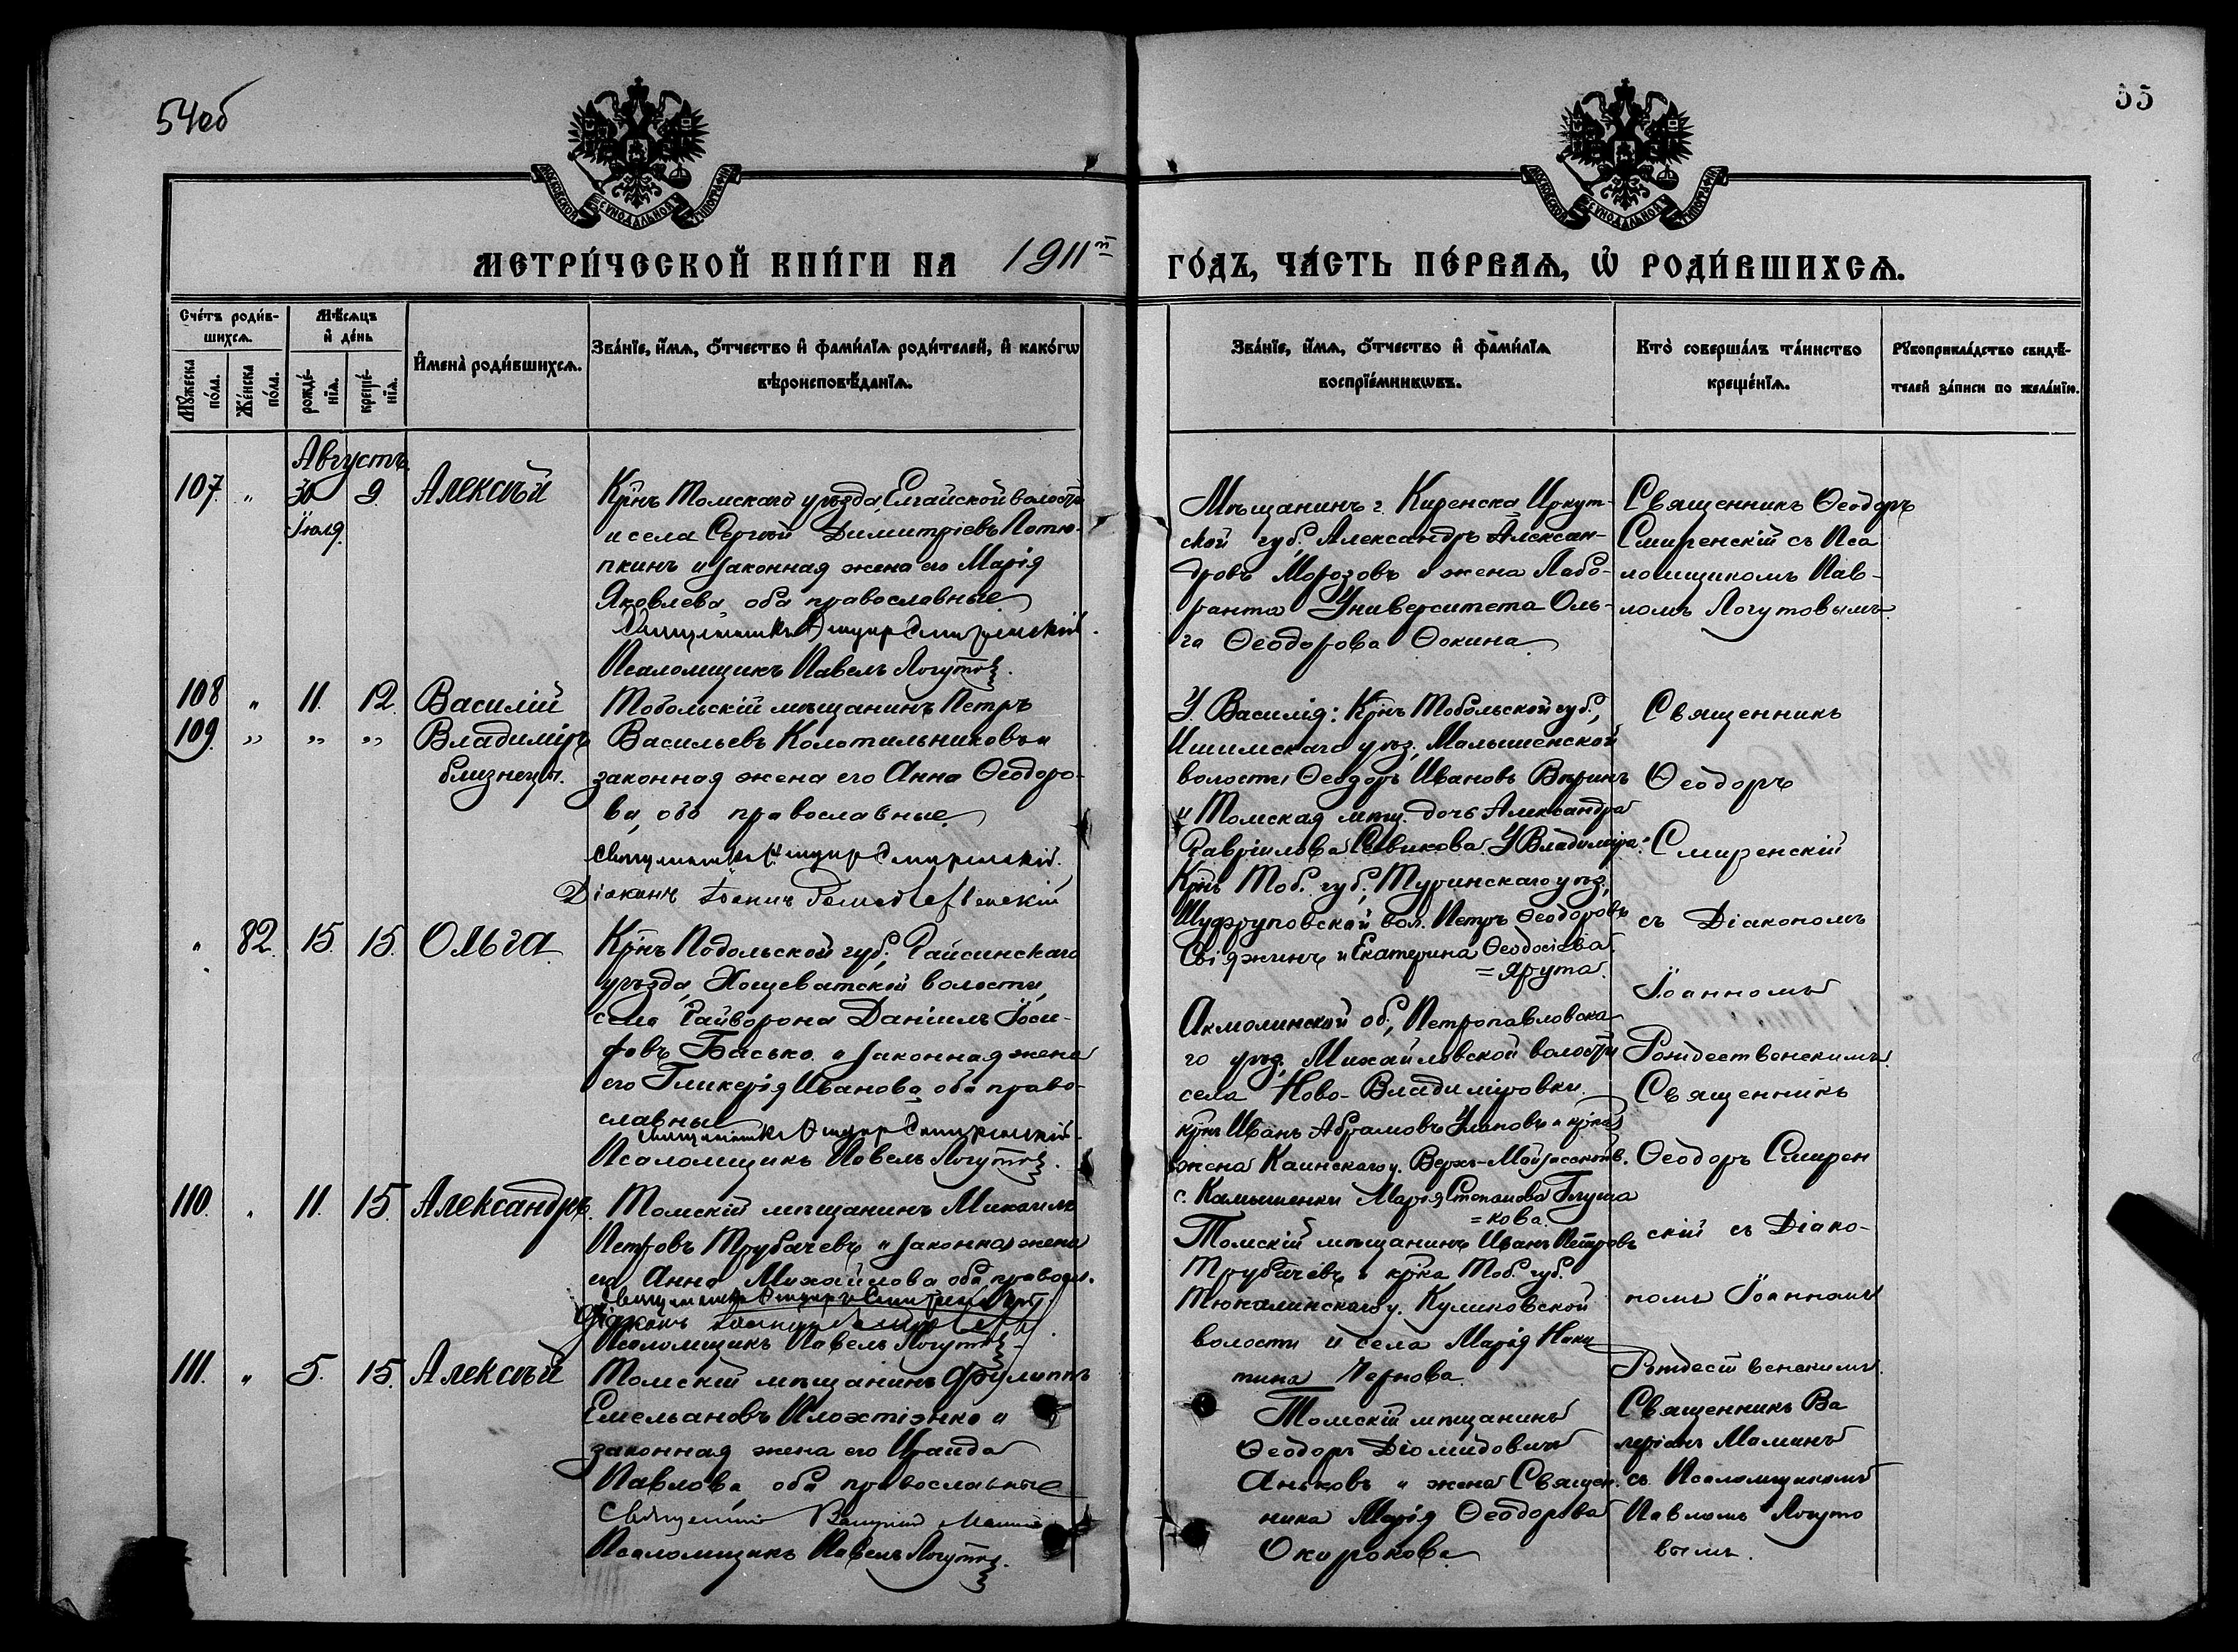 54об
55
МОСКОВСКОЙ СѴНОДАЛЬНОЙ ТИПОГРАФІИ
МОСКОВСКОЙ СѴНОДАЛЬНОЙ ТИПОГРАФІИ
МЕТРИ́ЧЕСКОЙ КНИ́ГИ НА 1911й
ГО́ДЪ, ЧА́СТЬ ПЕ́РВАѦ, Ѡ РОДИ́ВШИХСѦ.
Сче́тъ роди́в-
шихсѧ.
Мѣ́сѧцъ
и҆ де́нь
Мꙋ́жеска
по́ла.
Же́нска
по́ла.
рожде́-
нїѧ.
креще́-
нїѧ.
И҆мена̀ роди́вшихсѧ.
Зва́нїе, и҆́мѧ, ѻ҆́тчество и҆ фами́лїѧ роди́телей, и҆ како́гѡ
вѣроисповѣ́данїѧ.
Зва́нїе, и҆́мѧ, ѻ҆́тчество и҆ фами́лїѧ
воспрїе́мникѡвъ.
Кто̀ соверша́лъ та́инство
креще́нїѧ.
Рꙋкоприкла́дство свидѣ́-
телей за́писи по жела́нїю.
Августъ.
107. " 30 9. Алексѣй
Іюля.
Кр̃нъ Томскаго уѣзда, Елгайской волости
и села Сергѣй Димитріевъ Потю-
пкинъ и законная жена его Марія
Яковлева, оба православные
Священникъ Ѳеодоръ Смиренскій.
Псаломщикъ Павелъ Логутов.
Мѣщанинъ г. Киренска Иркут-
ской губ. Александръ Алексан-
дровъ Морозовъ и жена Лабо-
ранта Университета Оль-
га Ѳеодорова Ѳокина
Священникъ Ѳеодоръ
Смиренскій съ Пса
ломщикомъ Пав-
ломъ Логутовымъ.
108 " 11. 12. Василій
109. " " " Владиміръ
близнецы.
Тобольскій мѣщанинъ Петръ
Васильевъ Колотильниковъ и
законная жена его Анна Ѳеодоро-
ва, оба православные.
Священникъ Ѳеодоръ Смиренскій.
Діаконъ Іоаннъ Рождественскій
У Василія: Кр̃нъ Тобольской губ.,
Ишимскаго уѣз., Малышенской
волости Ѳеодоръ Ивановъ Вѣринъ
и Томская мѣщ. дочь Александра
Гавріилова. У Владиміра:
Кр̃нъ Тоб. губ., Туринскаго уѣз.,
вол. Петръ Ѳеодоровъ
и Екатерина Ѳеодосіева
= Ярута.
Священникъ
Ѳеодоръ
Смиренскій
съ Діакономъ
Іоанномъ
Рождественскимъ.
" 82. 15. 15. Ольга.
Кр̃нъ Подольской губ., Гайсинскаго
уѣзда, Хощеватской волости,
села Гайворона Даніилъ Іоси-
фовъ Басько и законная жена
его Гликерія Иванова, оба право-
славные
Священникъ Ѳеодоръ Смиренскій.
Псаломщикъ Павелъ Логутов.
Акмолинской об., Петропавловска-
го уѣз. Михайловской волости
села Ново-Владиміровки
кр̃нъ Иванъ Абрамовъ и
жена Каинскаго у. Верхъ-
с. Камышенки Марія Степанова Глуша
= кова.
Священникъ
Ѳеодоръ Смирен
скій съ Діако-
номъ Іоанномъ
Рождественскимъ.
110. " 11. 15. Александръ.
Томскій мѣщанинъ Михаилъ
Петровъ Трубачевъ и законная жена
его Анна Михайлова оба правосл.
Священникъ Ѳеодоръ Смиренскій
Діаконъ Іоаннъ
Псаломщикъ Павелъ Логутов.
Томскій мѣщанинъ Иванъ Петровъ
Трубачевъ и кр̃ка Тоб. губ.
Тюкалинскаго у. Куликовской
волости и села Марія Ники
тина Чернова.
111. " 5. 15. Алексѣй
Томскій мѣщанинъ Филиппъ
Емельяновъ и
законная жена его Ираида
Павлова, оба православные
Священникъ Валеріанъ Маминъ
Псаломщикъ Павелъ Логутов.
Томскій мѣщанинъ
Ѳеодоръ Діомидовичъ
Аньковъ и жена Священ-
ника Марія Ѳеодорова
Окорокова
Священникъ Ва
леріанъ Маминъ
съ Псаломщикомъ
Павломъ Логуто
вымъ.